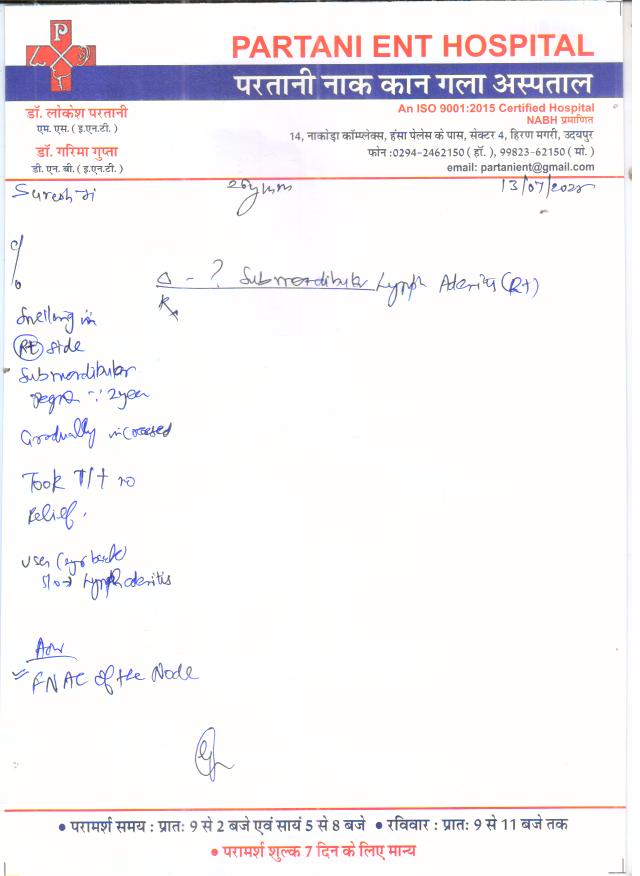 P
PARTANI ENT HOSPITAL
परतानी नाक कान गला अस्पताल
An ISO 9001:2015 Certified Hospital
NABH प्रमाणित
डॉ. लोकेश परतानी
एम. एस. ( इ.एन.टी. )
डॉ. गरिमा गुप्ता
डी. एन. बी. ( इ.एन.टी. )
14, नाकोड़ा कॉम्प्लेक्स, हंसा पेलेस के पास, सेक्टर 4, हिरण मगरी, उदयपुर
फोन :0294-2462150 ( हॉ. ), 99823-62150 ( मो. )
email: partanient@gmail.com
Suresh Ji
13/07/2022
c/o
Δ - ? Submandibular Lymph Adenitis (Rt)
Rx
Swelling in
Rt side
Submandibular
region ∵ 2 year
Gradually increased
Took T/t no
Relief.
S/o → Lymphadenitis
Adv
FNAC of the Node
• परामर्श समय : प्रातः 9 से 2 बजे एवं सायं 5 से 8 बजे • रविवार : प्रातः 9 से 11 बजे तक
• परामर्श शुल्क 7 दिन के लिए मान्य